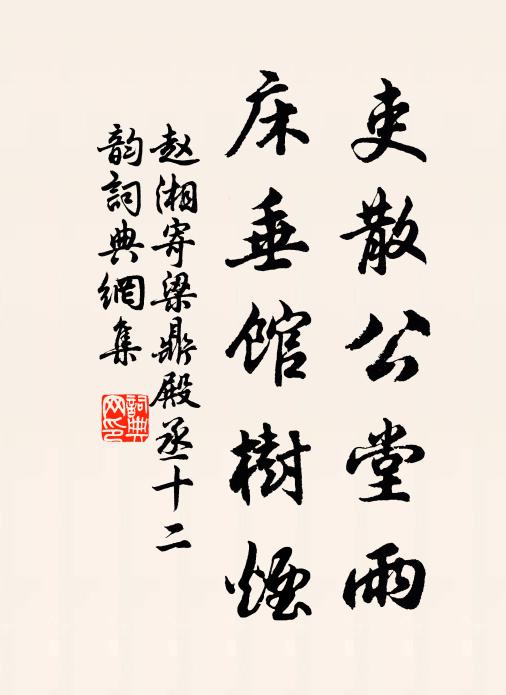 吏散公堂雨
床垂馆樹煙
赵湘寄梁鼎殿丞十二
韵詞典網集
詞典网印